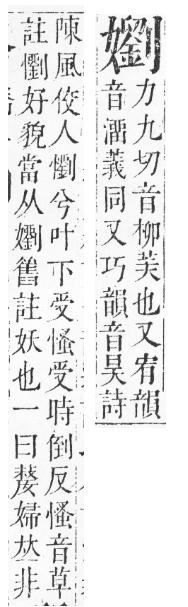 嬼
力九切音柳美也又宥韻
音霤義同又巧韻音昊詩
陳風佼人懰兮叶下受慅受時倒反慅音草
註懰好貌當从嬼舊註妖也一曰嫠婦𠀤非